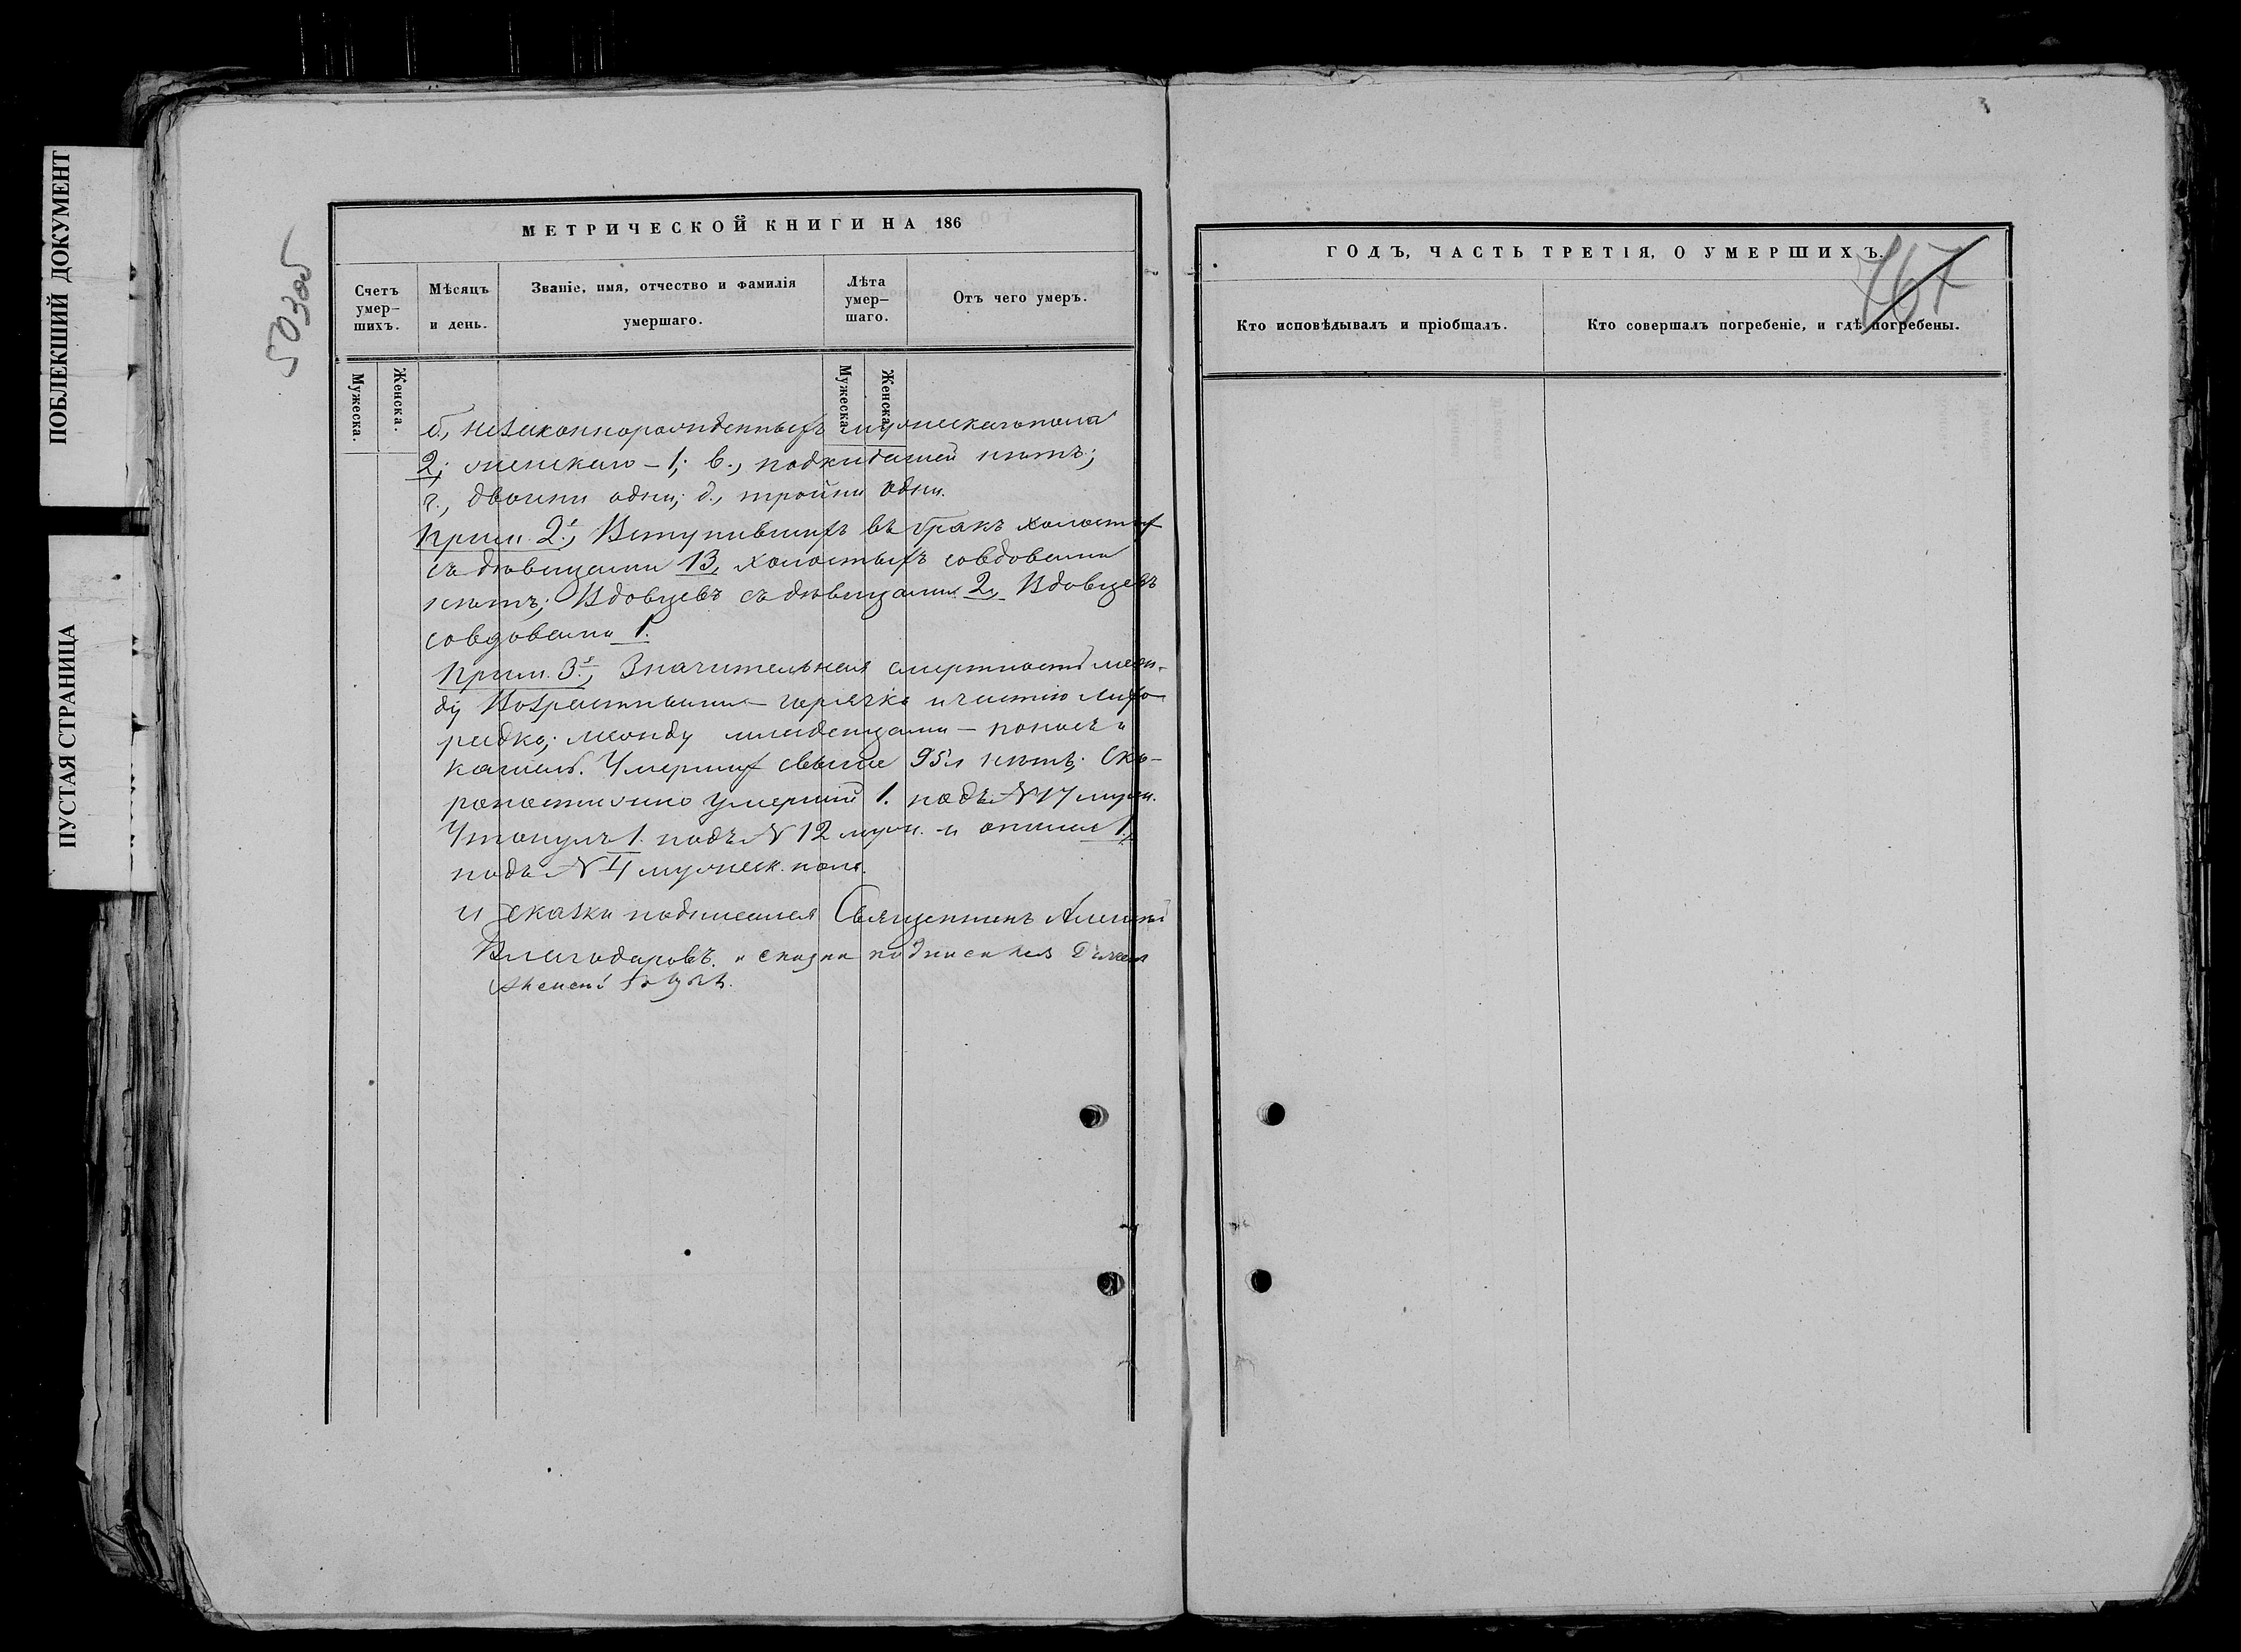 ПОБЛЕКШИЙ ДОКУМЕНТ
ПУСТАЯ СТРАНИЦА
503об
МЕТРИЧЕСКОЙ КНИГИ НА 186
Счетъ умер-шихъ.
Мѣсяцъ и день.
Званіе, имя, отчество и фамилія умершаго.
Лѣта умер-шаго.
Отъ чего умеръ.
Мужеска.
Женска.
Мужеска.
Женска.
б., незаконнорожденныхъ мужескаго пола
2; женскаго – 1; в., подкидышей нѣтъ;
г., двойни одни; д., тройни одни.
Прим. 2е, Вступившихъ въ бракъ холостых
съ дѣвицами 13, холостыхъ со вдовами
нѣтъ; Вдовцевъ съ дѣвицами 2, Вдовцевъ
со вдовами 1.
Прим. 3е, Значительная смертность меж-
ду Возрастными – горячка и частію лихо
радка; между младенцами – поносъ и
кашель. Умерших свыше 95и лѣтъ; Ско-
ропостижно умерший 1. подъ № 17 муж.
Утонулъ 1. подъ № 12 муж. и 1.
подъ № мужеск. пола.
Сей сказки подписался Священникъ Алексѣй
Благодаровъ. и сказки подписался Дьячекъ
ГОДЪ, ЧАСТЬ ТРЕТІЯ, О УМЕРШИХЪ.
767
Кто исповѣдывалъ и пріобщалъ.
Кто совершалъ погребеніе, и гдѣ погребены.